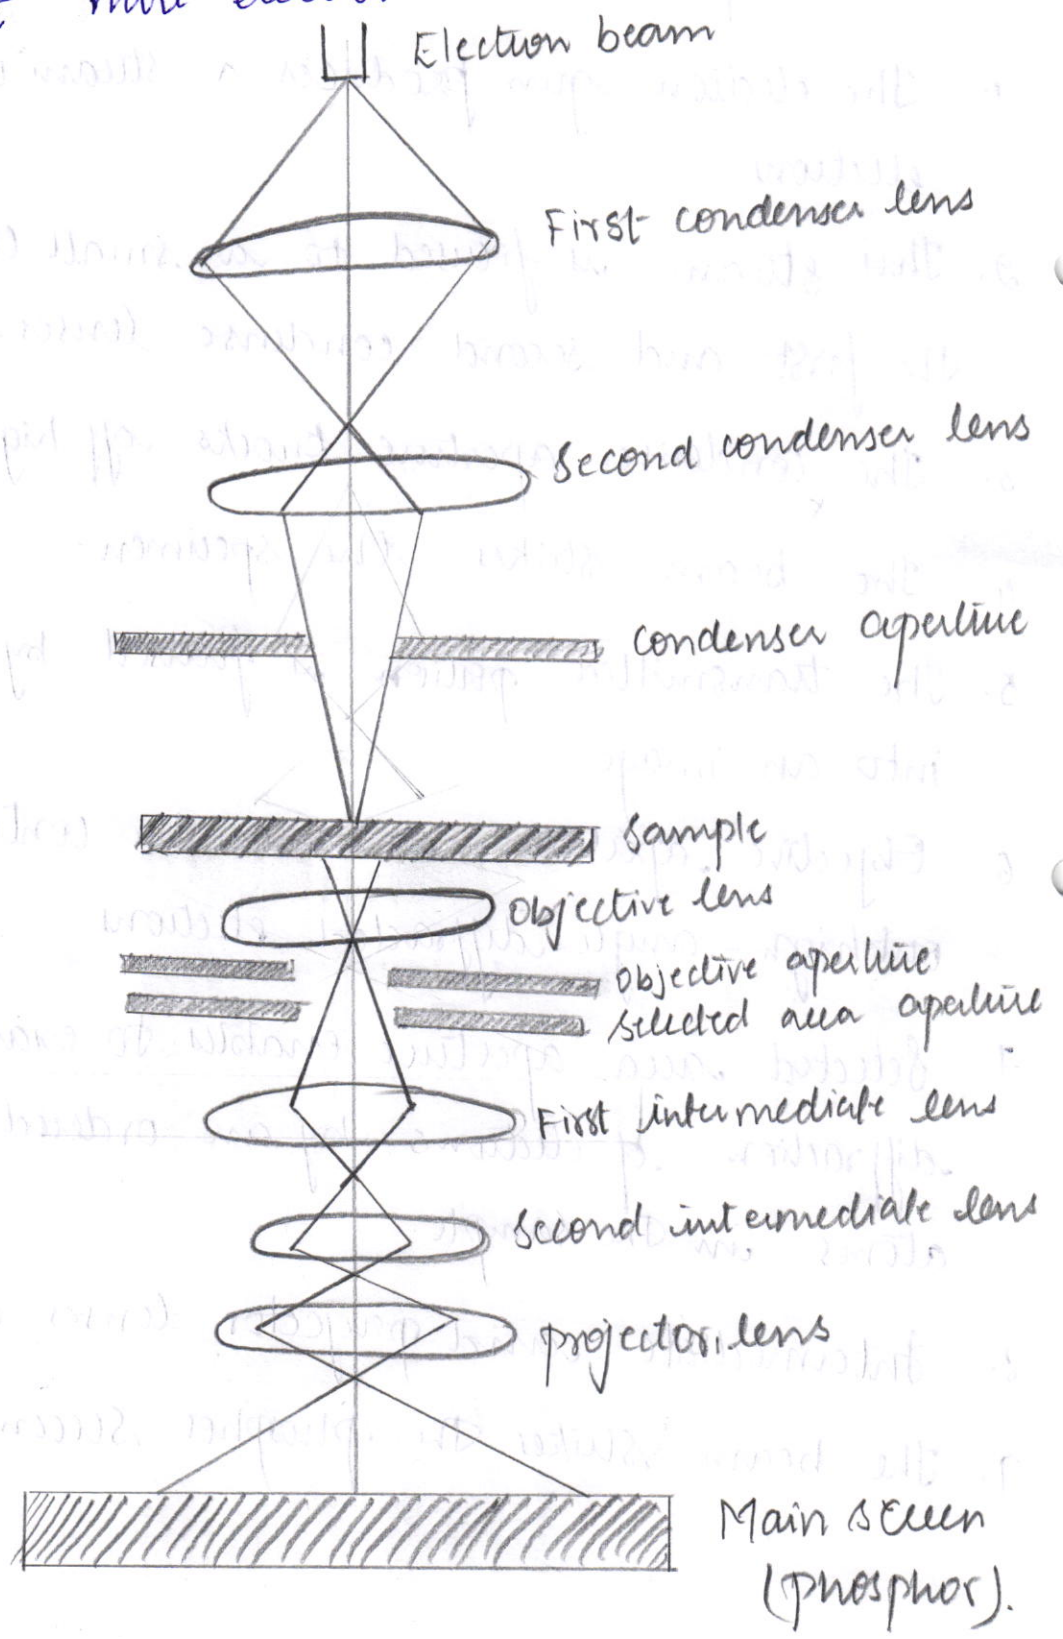 more
Electron beam
First condenser lens
Second condenser lens
Condenser aperture
Sample
Objective lens
Objective aperture
Selected area aperture
First intermediate lens
Second intermediate lens
projector lens
Main screen
(phosphor).